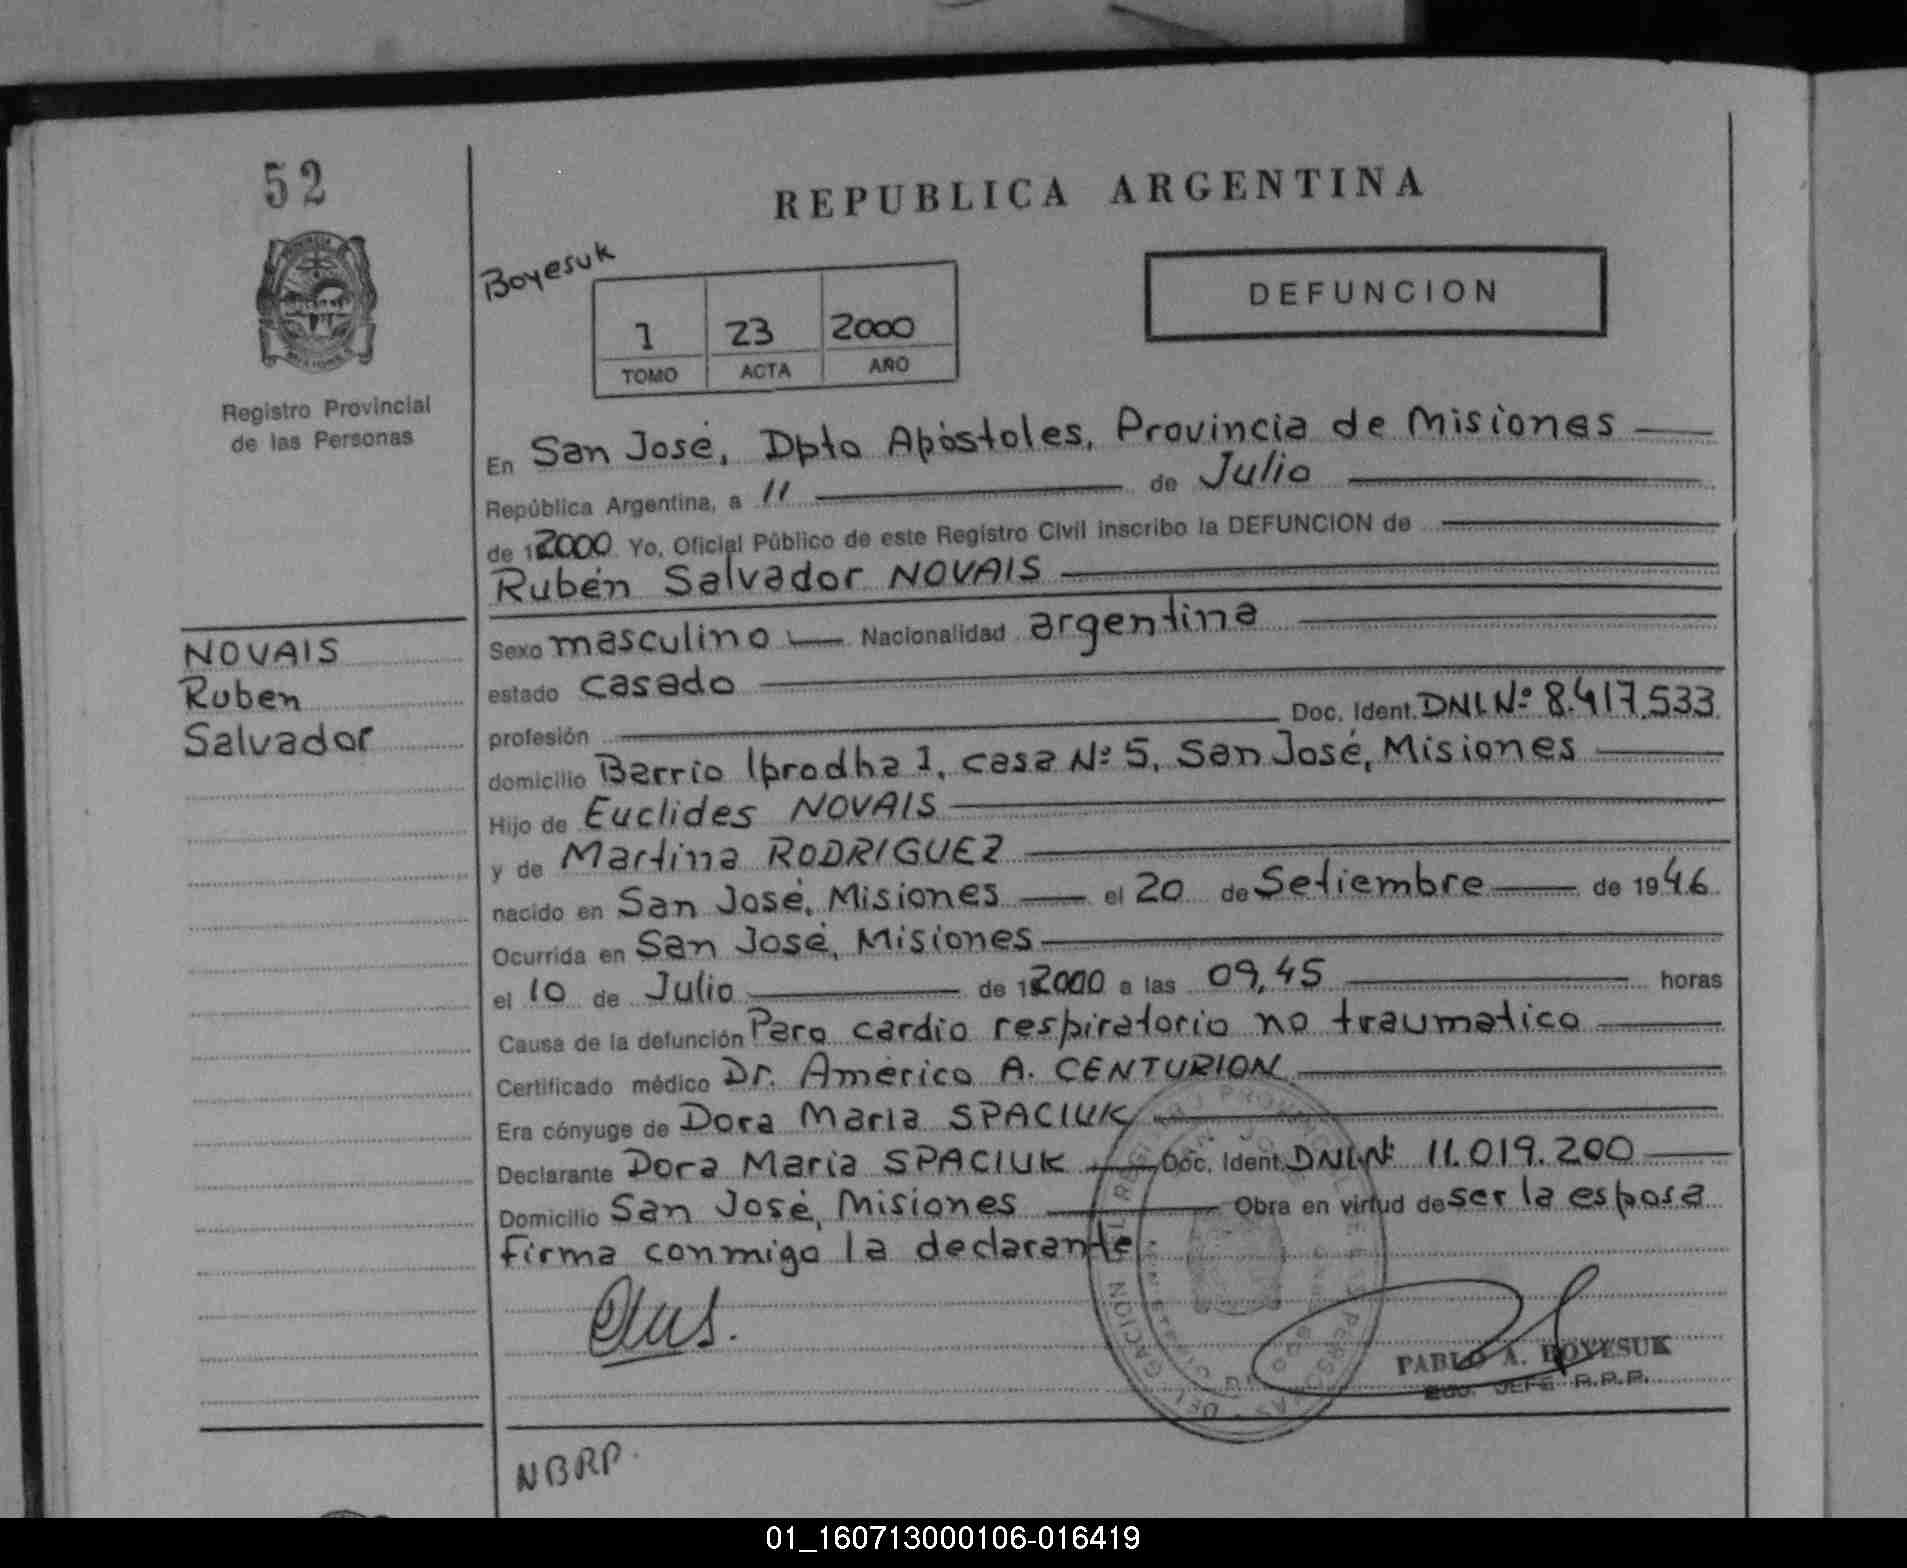 52
REPUBLICA ARGENTINA
Boyesuk
1 23 2000
TOMO ACTA AÑO
DEFUNCION
Registro Provincial
de las Personas
En San José, Dpto Apóstoles, Provincia de Misiones
República Argentina, a 11 de Julio
de 12000 Yo, Oficial Público de este Registro Civil inscribo la DEFUNCION de
Rubén Salvador NOVAIS
NOVAIS
Ruben
Salvador
Sexo masculino Nacionalidad argentina
estado casado
profesión Doc. Ident. DNI.Nº 8.417.533
domicilio Barrio Iprodha 1, casa Nº 5, San José, Misiones
Hijo de Euclides NOVAIS
y de Martina RODRIGUEZ
nacido en San José, Misiones el 20 de Setiembre de 1946
Ocurrida en San José, Misiones
el 10 de Julio de 12000 a las 09,45 horas
Causa de la defunción Paro cardio respiratorio no traumatico
Certificado médico Dr. Américo A. CENTURION
Era cónyuge de Dora Maria SPACIUK
Declarante Dora Maria SPACIUK Doc. Ident. DNI.Nº 11.019.200
Domicilio San José, Misiones Obra en virtud de ser la esposa
firma conmigo la declarante.
PABLO A. BOYESUK
JEFE R.P.P.
NBRP.
01_160713000106-016419